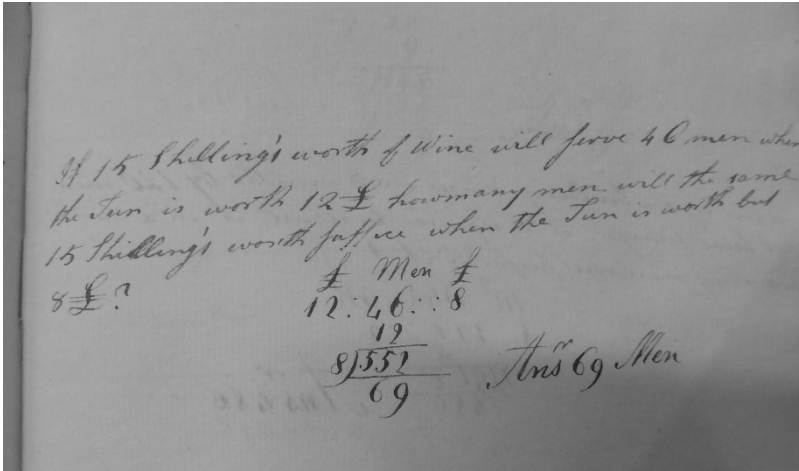 If 15 Shilling's worth of Wine will serve 46 men when
the Tun is worth 12 £ how many men will the same
15 Shilling's worth suffice when the Tun is worth but
8 £ ?
£ Men £
12 : 46 : : 8
12
8)552
69
Ansr 69 Men